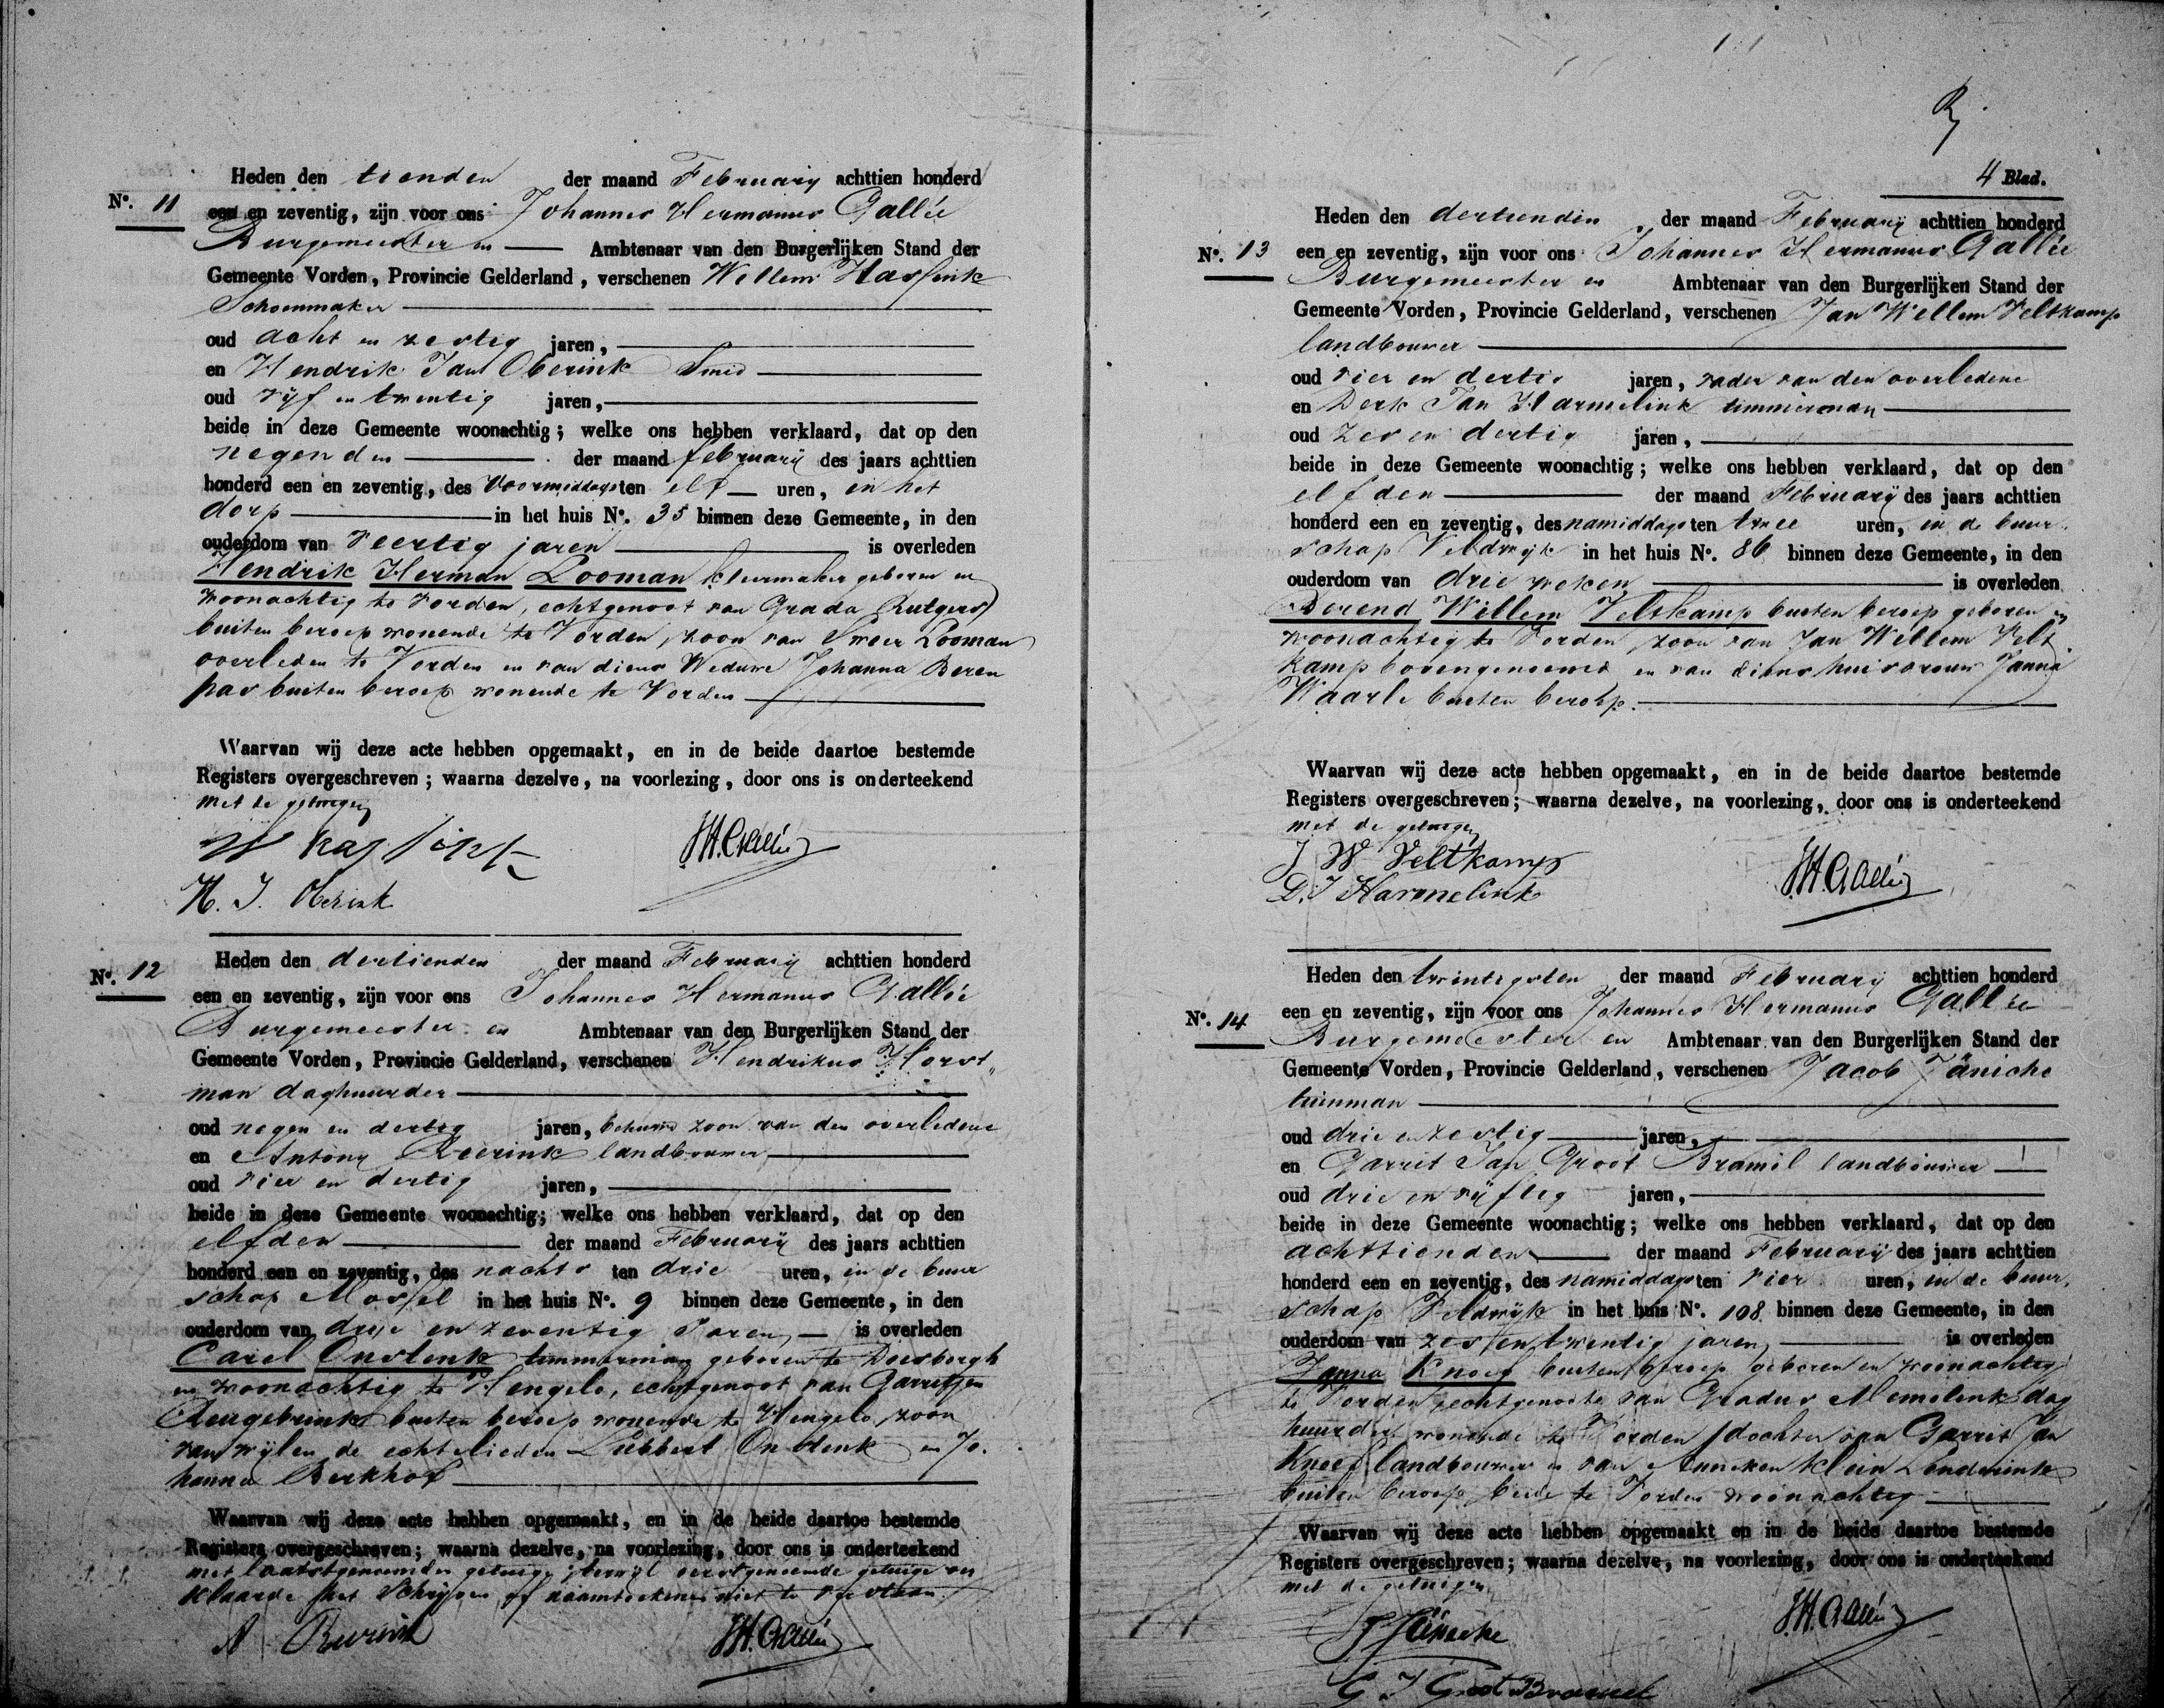 Heden den tienden der maand February achttien honderd
No. 11 een en zeventig, zijn voor ons Johannes Hermanus Gallée
Burgemeester en Ambtenaar van den Burgerlijken Stand der
Gemeente Vorden, Provincie Gelderland, verschenen Willem Hassink
Schoenmaker
oud acht en zestig jaren,
en Hendrik Jan Oberink Smid
oud vijf en twentig jaren,
beide in deze Gemeente woonachtig; welke ons hebben verklaard, dat op den
negenden der maand februarij des jaars achttien
honderd een en zeventig, des voormiddags ten elf uren, in het
dorp in het huis No. 35 binnen deze Gemeente, in den
ouderdom van Veertig jaren is overleden
Hendrik Herman Looman kleermaker geboren en
woonachtig te Vorden, echtgenoot van Grada Rutgers
buiten beroep wonende te Vorden, zoon van Sweer Looman
overleden te Vorden en van diens Weduwe Johanna Beren
pas buiten beroep wonende te Vorden
Waarvan wij deze acte hebben opgemaakt, en in de beide daartoe bestemde
Registers overgeschreven; waarna dezelve, na voorlezing, door ons is onderteekend
met de getuigen
W Hassink JH. Gallée
H. J. Oberink
Heden den dertienden der maand Februarij achttien honderd
No. 12 een en zeventig, zijn voor ons Johannes Hermanus Gallée
Burgemeester en Ambtenaar van den Burgerlijken Stand der
Gemeente Vorden, Provincie Gelderland, verschenen Hendrikus Horst„
man daghuurder
oud negen en dertig jaren, behuwd zoon van den overledene
en Antony Reerink landbouwer
oud vier en dertig jaren,
beide in deze Gemeente woonachtig; welke ons hebben verklaard, dat op den
elfden der maand Februarij des jaars achttien
honderd een en zeventig, des nachts ten drie uren, in de buur
schap Mossel in het huis No. 9 binnen deze Gemeente, in den
ouderdom van drie en zeventig Jaren, is overleden
Carel Onstenk timmerman geboren te Doesborgh
en woonachtig te Hengelo, echtgenoot van Garritjen
buiten beroep wonende te Hengelo, zoon
van wijlen de echtelieden Lubbert Onstenk en Jo.
hanna Berkhof
Waarvan wij deze acte hebben opgemaakt, en in de beide daartoe bestemde
Registers overgeschreven; waarna dezelve, na voorlezing, door ons is onderteekend
met laatstgenoemden getuige, terwijl eerstgenoemde getuige ver
klaarde het Schrijven of naamteekenen niet te verstaan.
A Reerink JH. Gallée
4 Blad.
Heden den dertienden der maand Februarij achttien honderd
No. 13 een en zeventig, zijn voor ons Johannes Hermanus Gallée
Burgemeester en Ambtenaar van den Burgerlijken Stand der
Gemeente Vorden, Provincie Gelderland, verschenen Jan Willem Veltkamp
landbouwer
oud vier en dertig jaren, vader van den overledene
en Derk Jan Harmelink timmerman
oud zes en dertig jaren,
beide in deze Gemeente woonachtig; welke ons hebben verklaard, dat op den
elfden der maand Februarij des jaars achttien
honderd een en zeventig, des namiddags ten twee uren, in de buur.
schap Veldwijk in het huis No. 86 binnen deze Gemeente, in den
ouderdom van drie weken is overleden
Berend Willem Veltkamp buiten beroep geboren en
woonachtig te Vorden, zoon van Jan Willem Velt
kamp bovengenoemd en van diens huisvrouw Janna
Waarle buiten beroep.
Waarvan wij deze acte hebben opgemaakt, en in de beide daartoe bestemde
Registers overgeschreven; waarna dezelve, na voorlezing, door ons is onderteekend
met de getuigen
J W Veltkamp
D. J Harmelink JH. Gallée
Heden den twintigsten der maand Februarij achttien honderd
No. 14 een en zeventig, zijn voor ons Johannes Hermanus Gallée
Burgemeester en Ambtenaar van den Burgerlijken Stand der
Gemeente Vorden, Provincie Gelderland, verschenen Jacob Jäniche
tuinman
oud drie en zestig jaren,
en Garrit Jan Groot Bramil landbouwer
oud drie en vijftig jaren,
beide in deze Gemeente woonachtig; welke ons hebben verklaard, dat op den
achttienden der maand Februarij des jaars achttien
honderd een en zeventig, des namiddags ten vier uren, in de buur,
schap Veldwijk in het huis No. 108 binnen deze Gemeente, in den
ouderdom van zes en twentig jaren, is overleden
Janna Knoef buiten beroep geboren en woonachtig
te Vorden, echtgenoote van Gradus Memelink dag
huurder wonende te Vorden, dochter van Garrit Jan
Knoef landbouwer en van Anneken Klein Lenderink
buiten beroep, beide te Vorden woonachtig
Waarvan wij deze acte hebben opgemaakt en in de beide daartoe bestemde
Registers overgeschreven; waarna dezelve, na voorlezing, door ons is onderteekend
met de getuigen
J Jäniche JH. Gallée
G J Groot Bramel